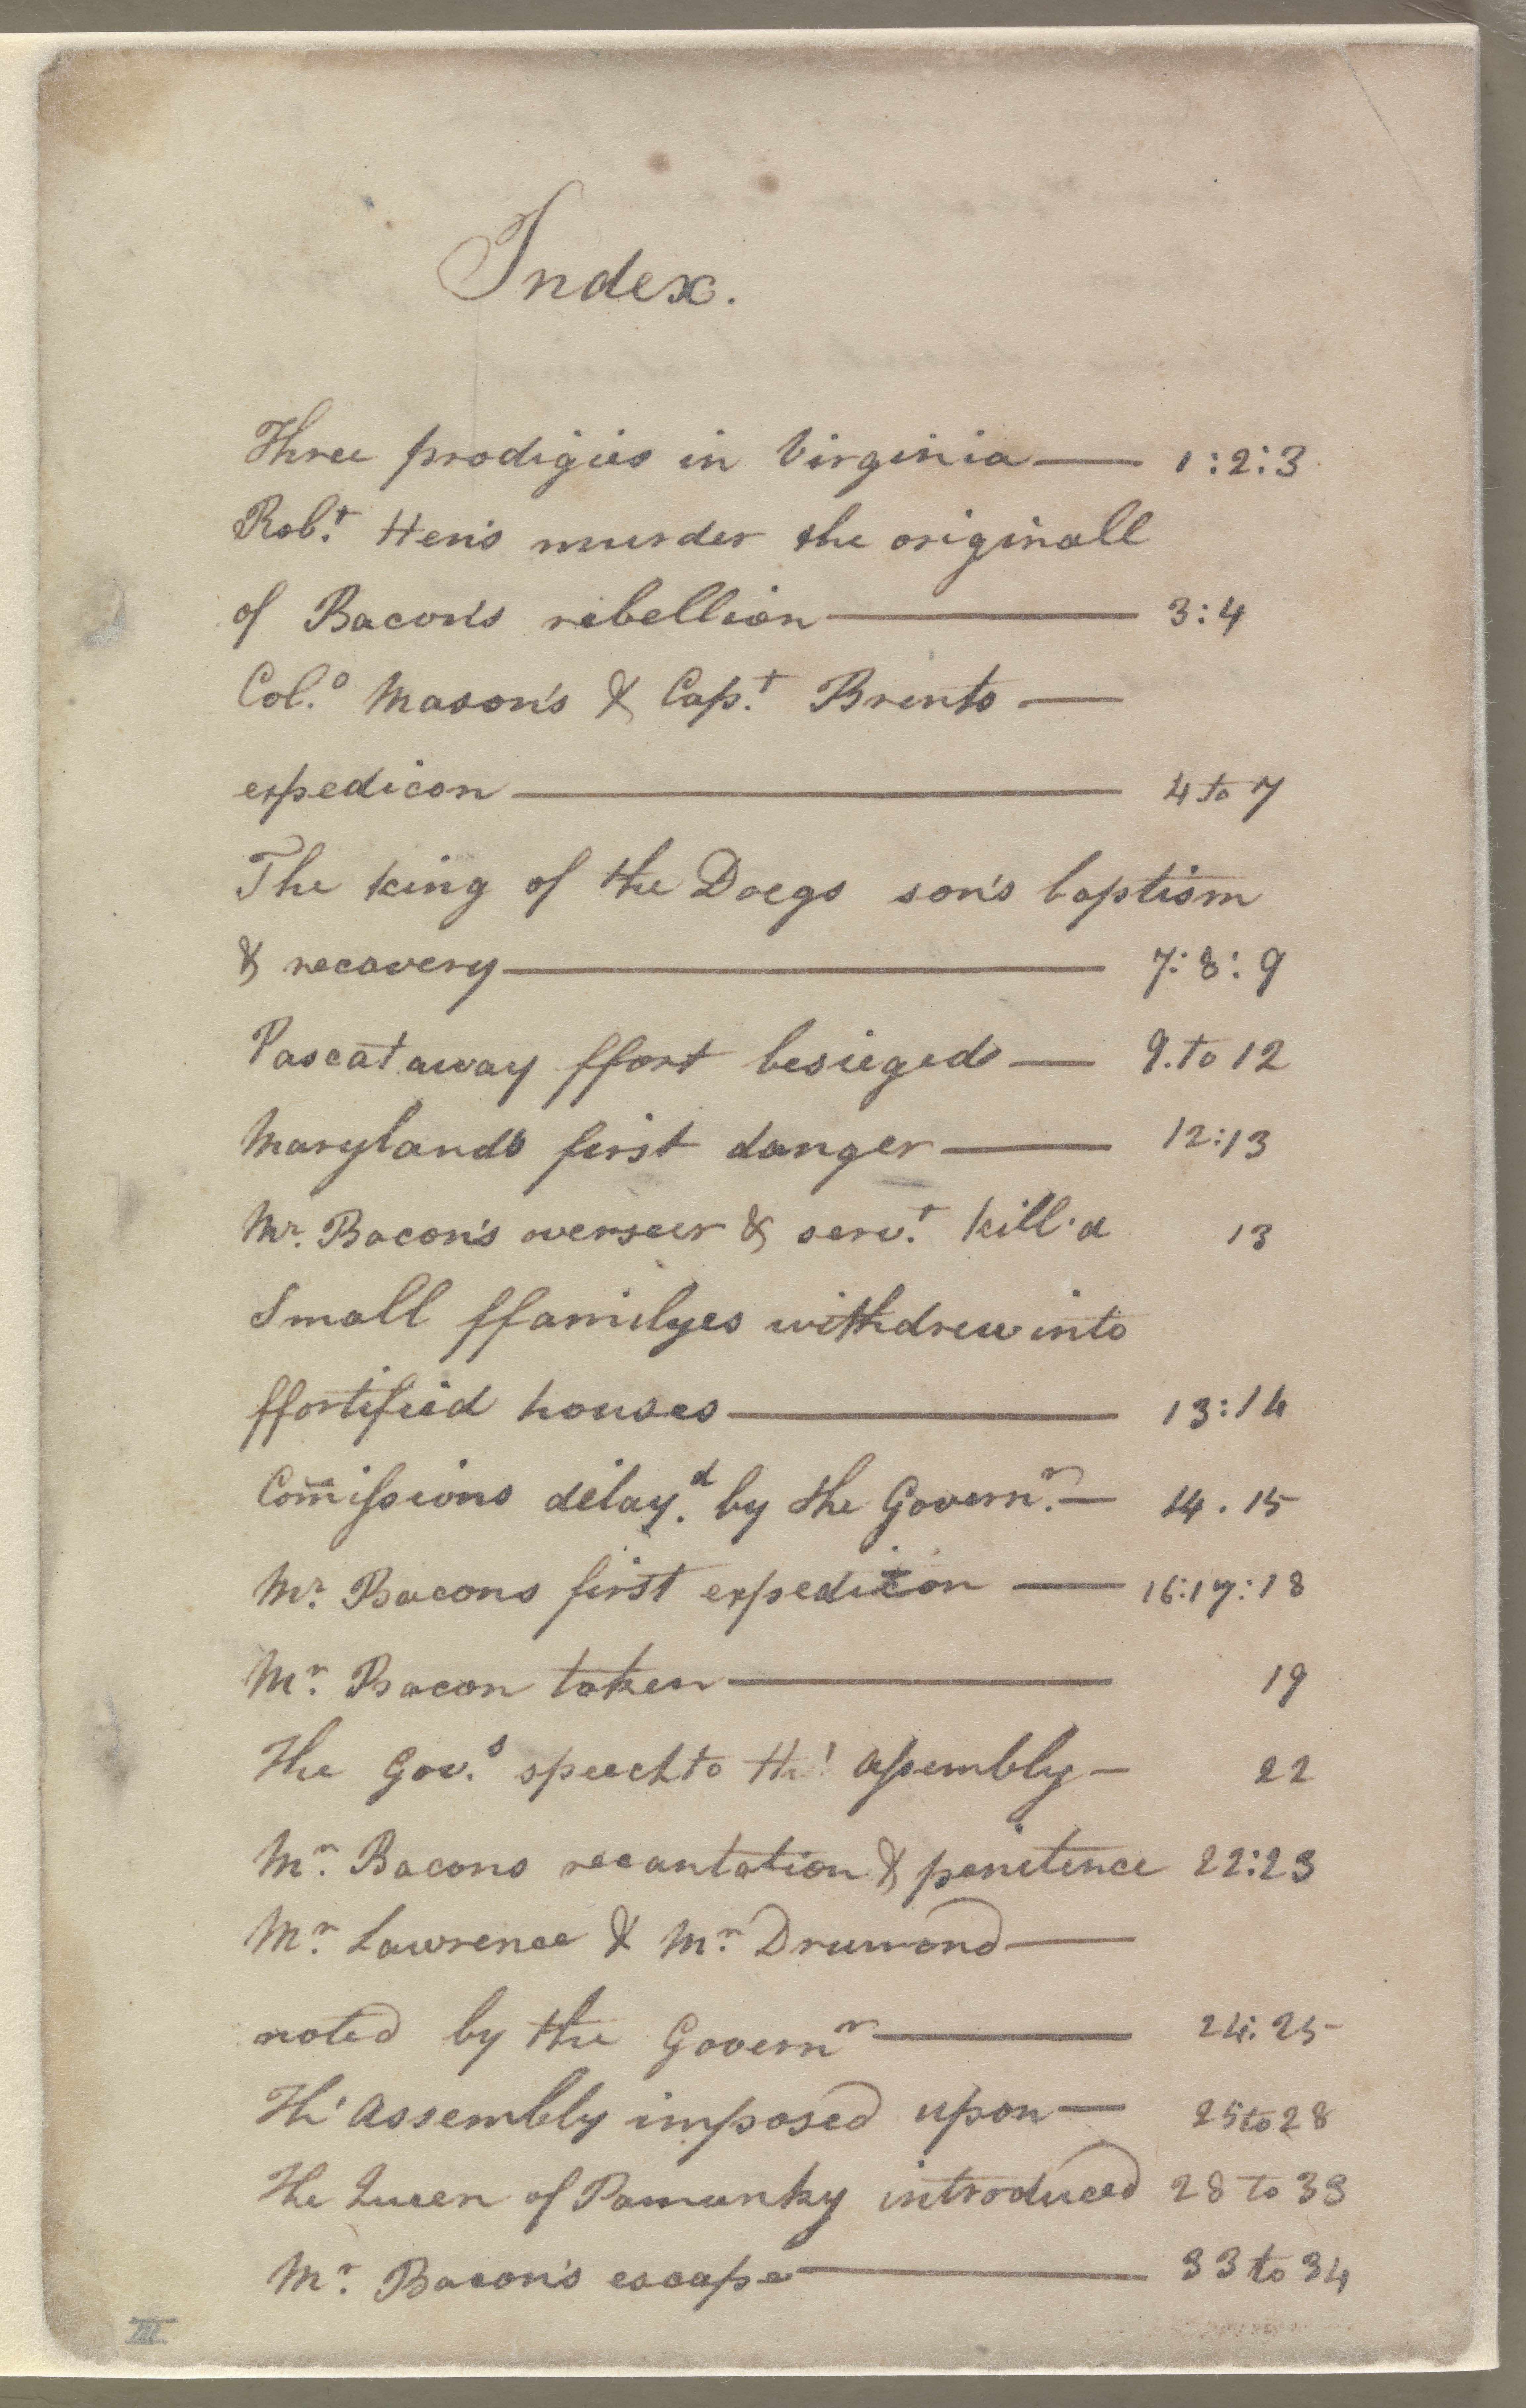 Index.
Three prodigies in Virginia — 1:2:3
Rob.t Hen's murder the originall
of Bacon's rebellion — 3:4
Col.o Mason's & Cap.t Brents —
expedicon — 4 to 7
The king of the Doegs son's baptism
& recovery — 7:8:9
Pascataway ffort besieged — 9. to 12
Marylands first danger — 12:13
Mr. Bacon's overseer & serv.t kill'd 13
Small ffamilyes withdrew into
ffortified houses — 13:14
Com̅issions delay.d by the Govern.r — 14. 15
Mr. Bacons first expedicon — 16:17:18
Mr. Bacon taken — 19
The Gov.s speech to th' assembly — 22
Mr. Bacons recantation & penitence 22:23
Mr. Lawrence & Mr. Drumond —
noted by the Governr — 24:25
Th' Assembly imposed upon — 25 to 28
The Queen of Pamunky introduced 28 to 33
Mr. Bacon's escape — 33 to 34
III